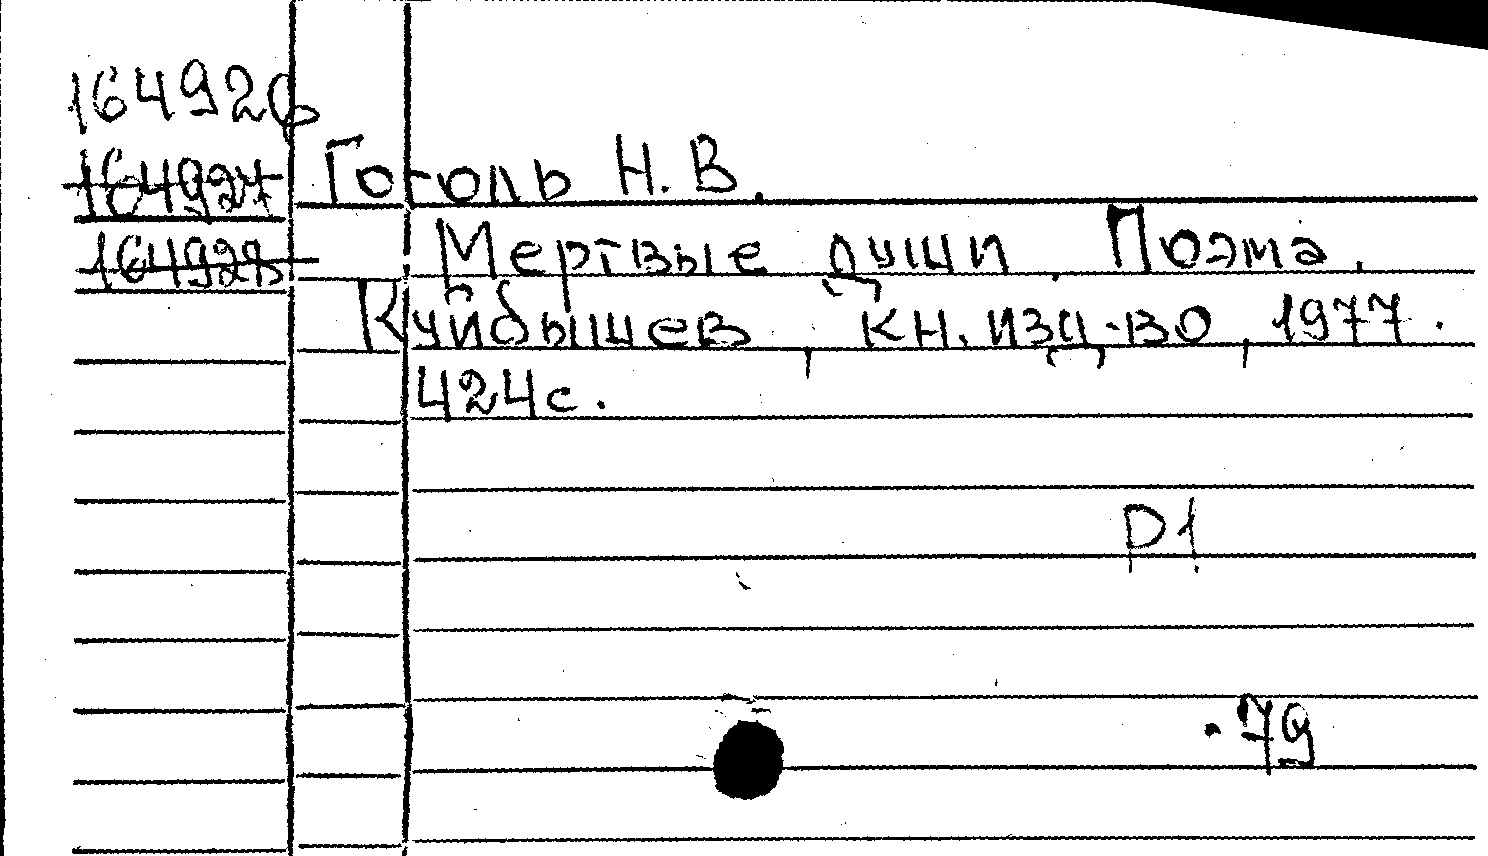 164926
164927 Гоголь Н. В.
164928 Мертвые души. Поэма.
Куйбышев, кн. изд-во, 1977.
424с.
Р1
.79